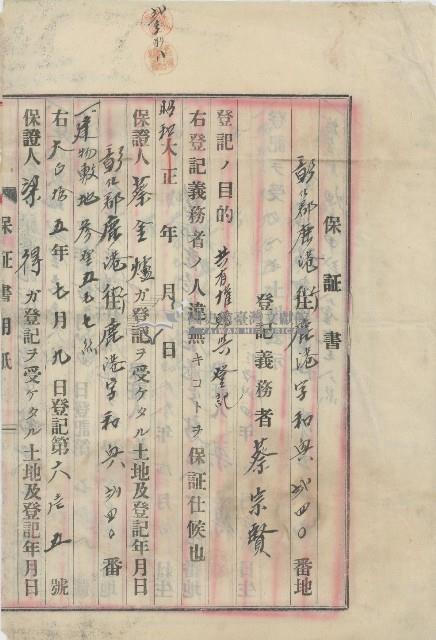 保証書
彰化郡鹿港街鹿港字和興弐四〇番地
登記義務者 蔡宗賢
登記ノ目的 共有權贈與登記
右登記義務者ノ人違無キコトヲ保証仕候也
昭和大正 年 月 日
保證人 蔡金爐 ガ登記ヲ受ケタル土地及登記年月日
彰化郡鹿港街鹿港字和興弐四〇番
一建物敷地 参厘五毛七絲
右大正拾五年七月九日登記第六〇五號
保證人 梁得 ガ登記ヲ受ケタル土地及登記年月日
保証書用紙
臺灣文獻館
TAIWAN HISTORICA